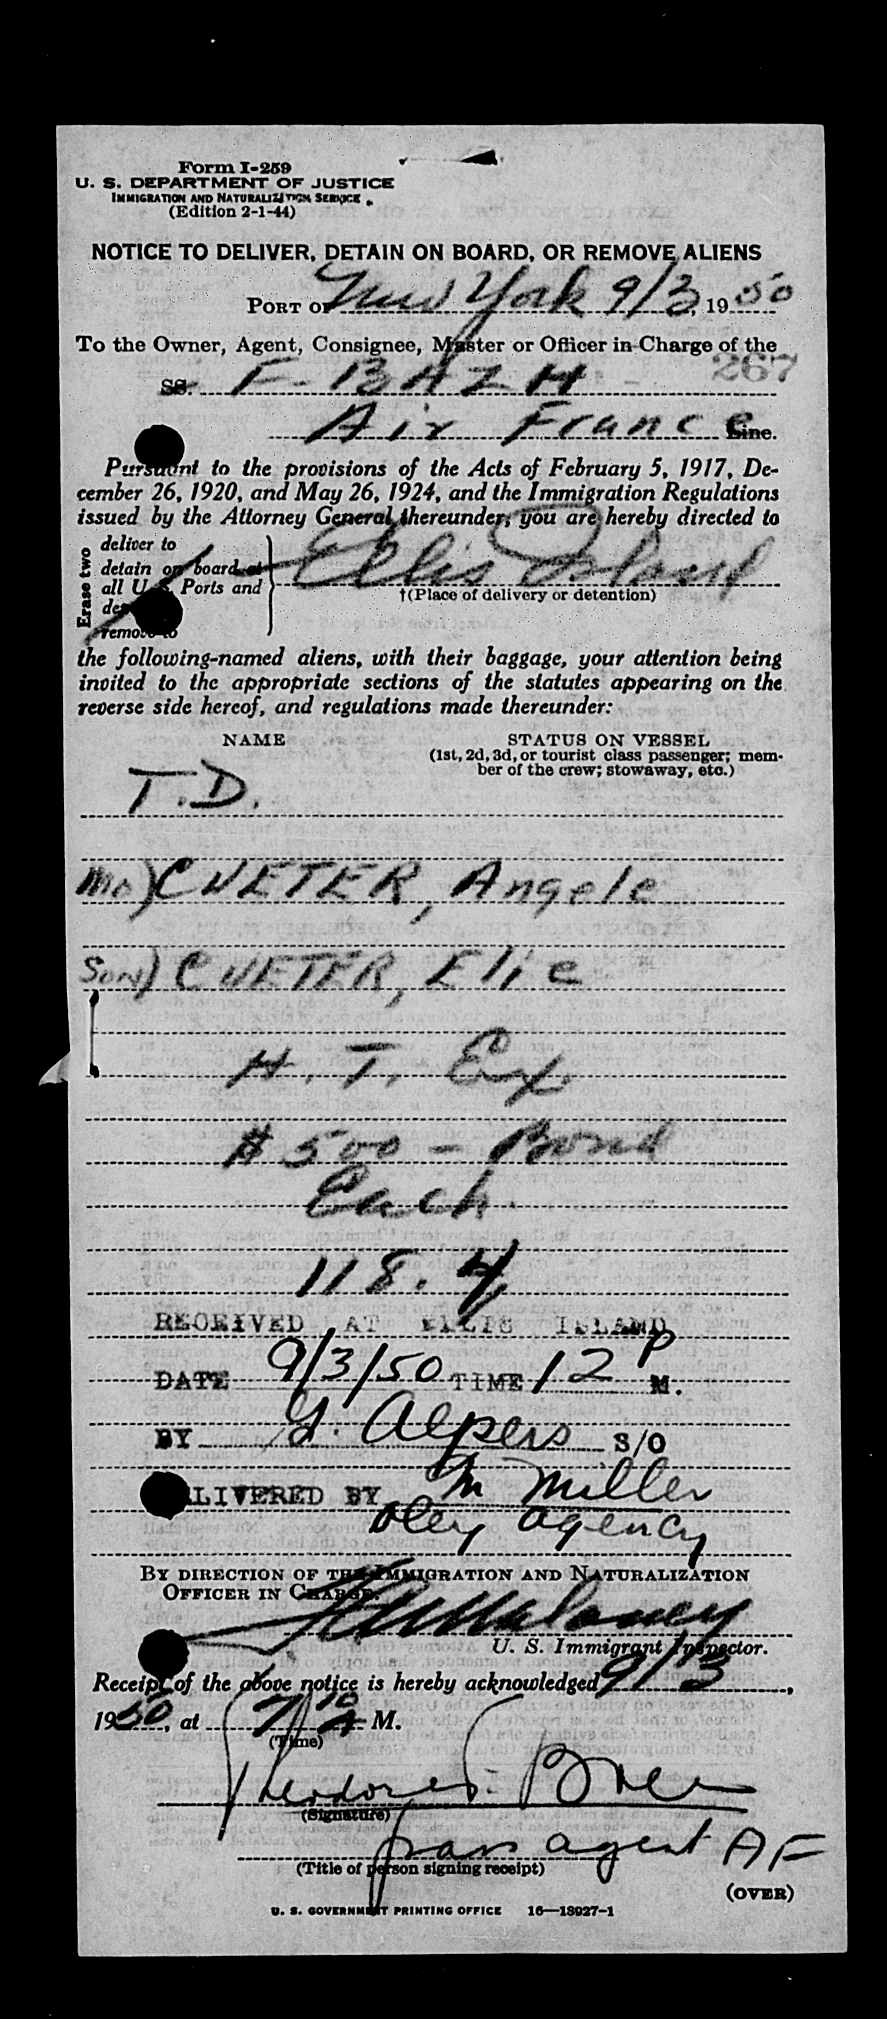 Form I-259
U. S. DEPARTMENT OF JUSTICE
IMMIGRATION AND NATURALIZATION SERVICE
(Edition 2-1-44)
NOTICE TO DELIVER, DETAIN ON BOARD, OR REMOVE ALIENS
PORT OF New York 9/3, 1950
To the Owner, Agent, Consignee, Master or Officer in Charge of the
267
SS. F-BAZH
Air France Line.
Pursuant to the provisions of the Acts of February 5, 1917, De-
cember 26, 1920, and May 26, 1924, and the Immigration Regulations
issued by the Attorney General thereunder, you are hereby directed to
Erase two
deliver to
detain on board at
all U. S. Ports and
remove to
Ellis Island
†(Place of delivery or detention)
the following-named aliens, with their baggage, your attention being
invited to the appropriate sections of the statutes appearing on the
reverse side hereof, and regulations made thereunder:
NAME STATUS ON VESSEL
(1st, 2d, 3d, or tourist class passenger; mem-
ber of the crew; stowaway, etc.)
T.D.
Mo) CUETER, Angele
Son) CUETER, Elie
H. T. Ex.
$500 - Bond
Each.
118.4
RECEIVED AT ELLIS ISLAND
DATE 9/3/50 TIME 12 P M.
BY G. Alpers S/O
DELIVERED BY M Miller
Oley Agency
BY DIRECTION OF THE IMMIGRATION AND NATURALIZATION
OFFICER IN CHARGE.
Maloney
U. S. Immigrant Inspector.
Receipt of the above notice is hereby acknowledged 9/3,
1950, at 7 10 A M.
(Time)
Theodore
(Signature)
pass agent AF
(Title of person signing receipt)
(OVER)
U. S. GOVERNMENT PRINTING OFFICE 16—13927-1